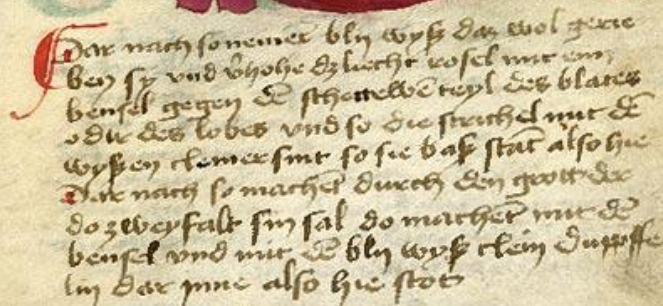 Dar nach so nemet bly wyß daz wol gerie
ben sy vnd v̊hohe dz liecht rosel mit eim
bensel gegen dē schettewē teyl des blates
odir des lobes vnd so die strichel mit dē
wyßen cleiner sint so sie baß stāt also hie
Dar nach so machet durch den grott der
do zweyfalt sin sal do machet mit dē
bensel vnd mit dē bly wyß clein duppffe
lin dar jnne also hie stot